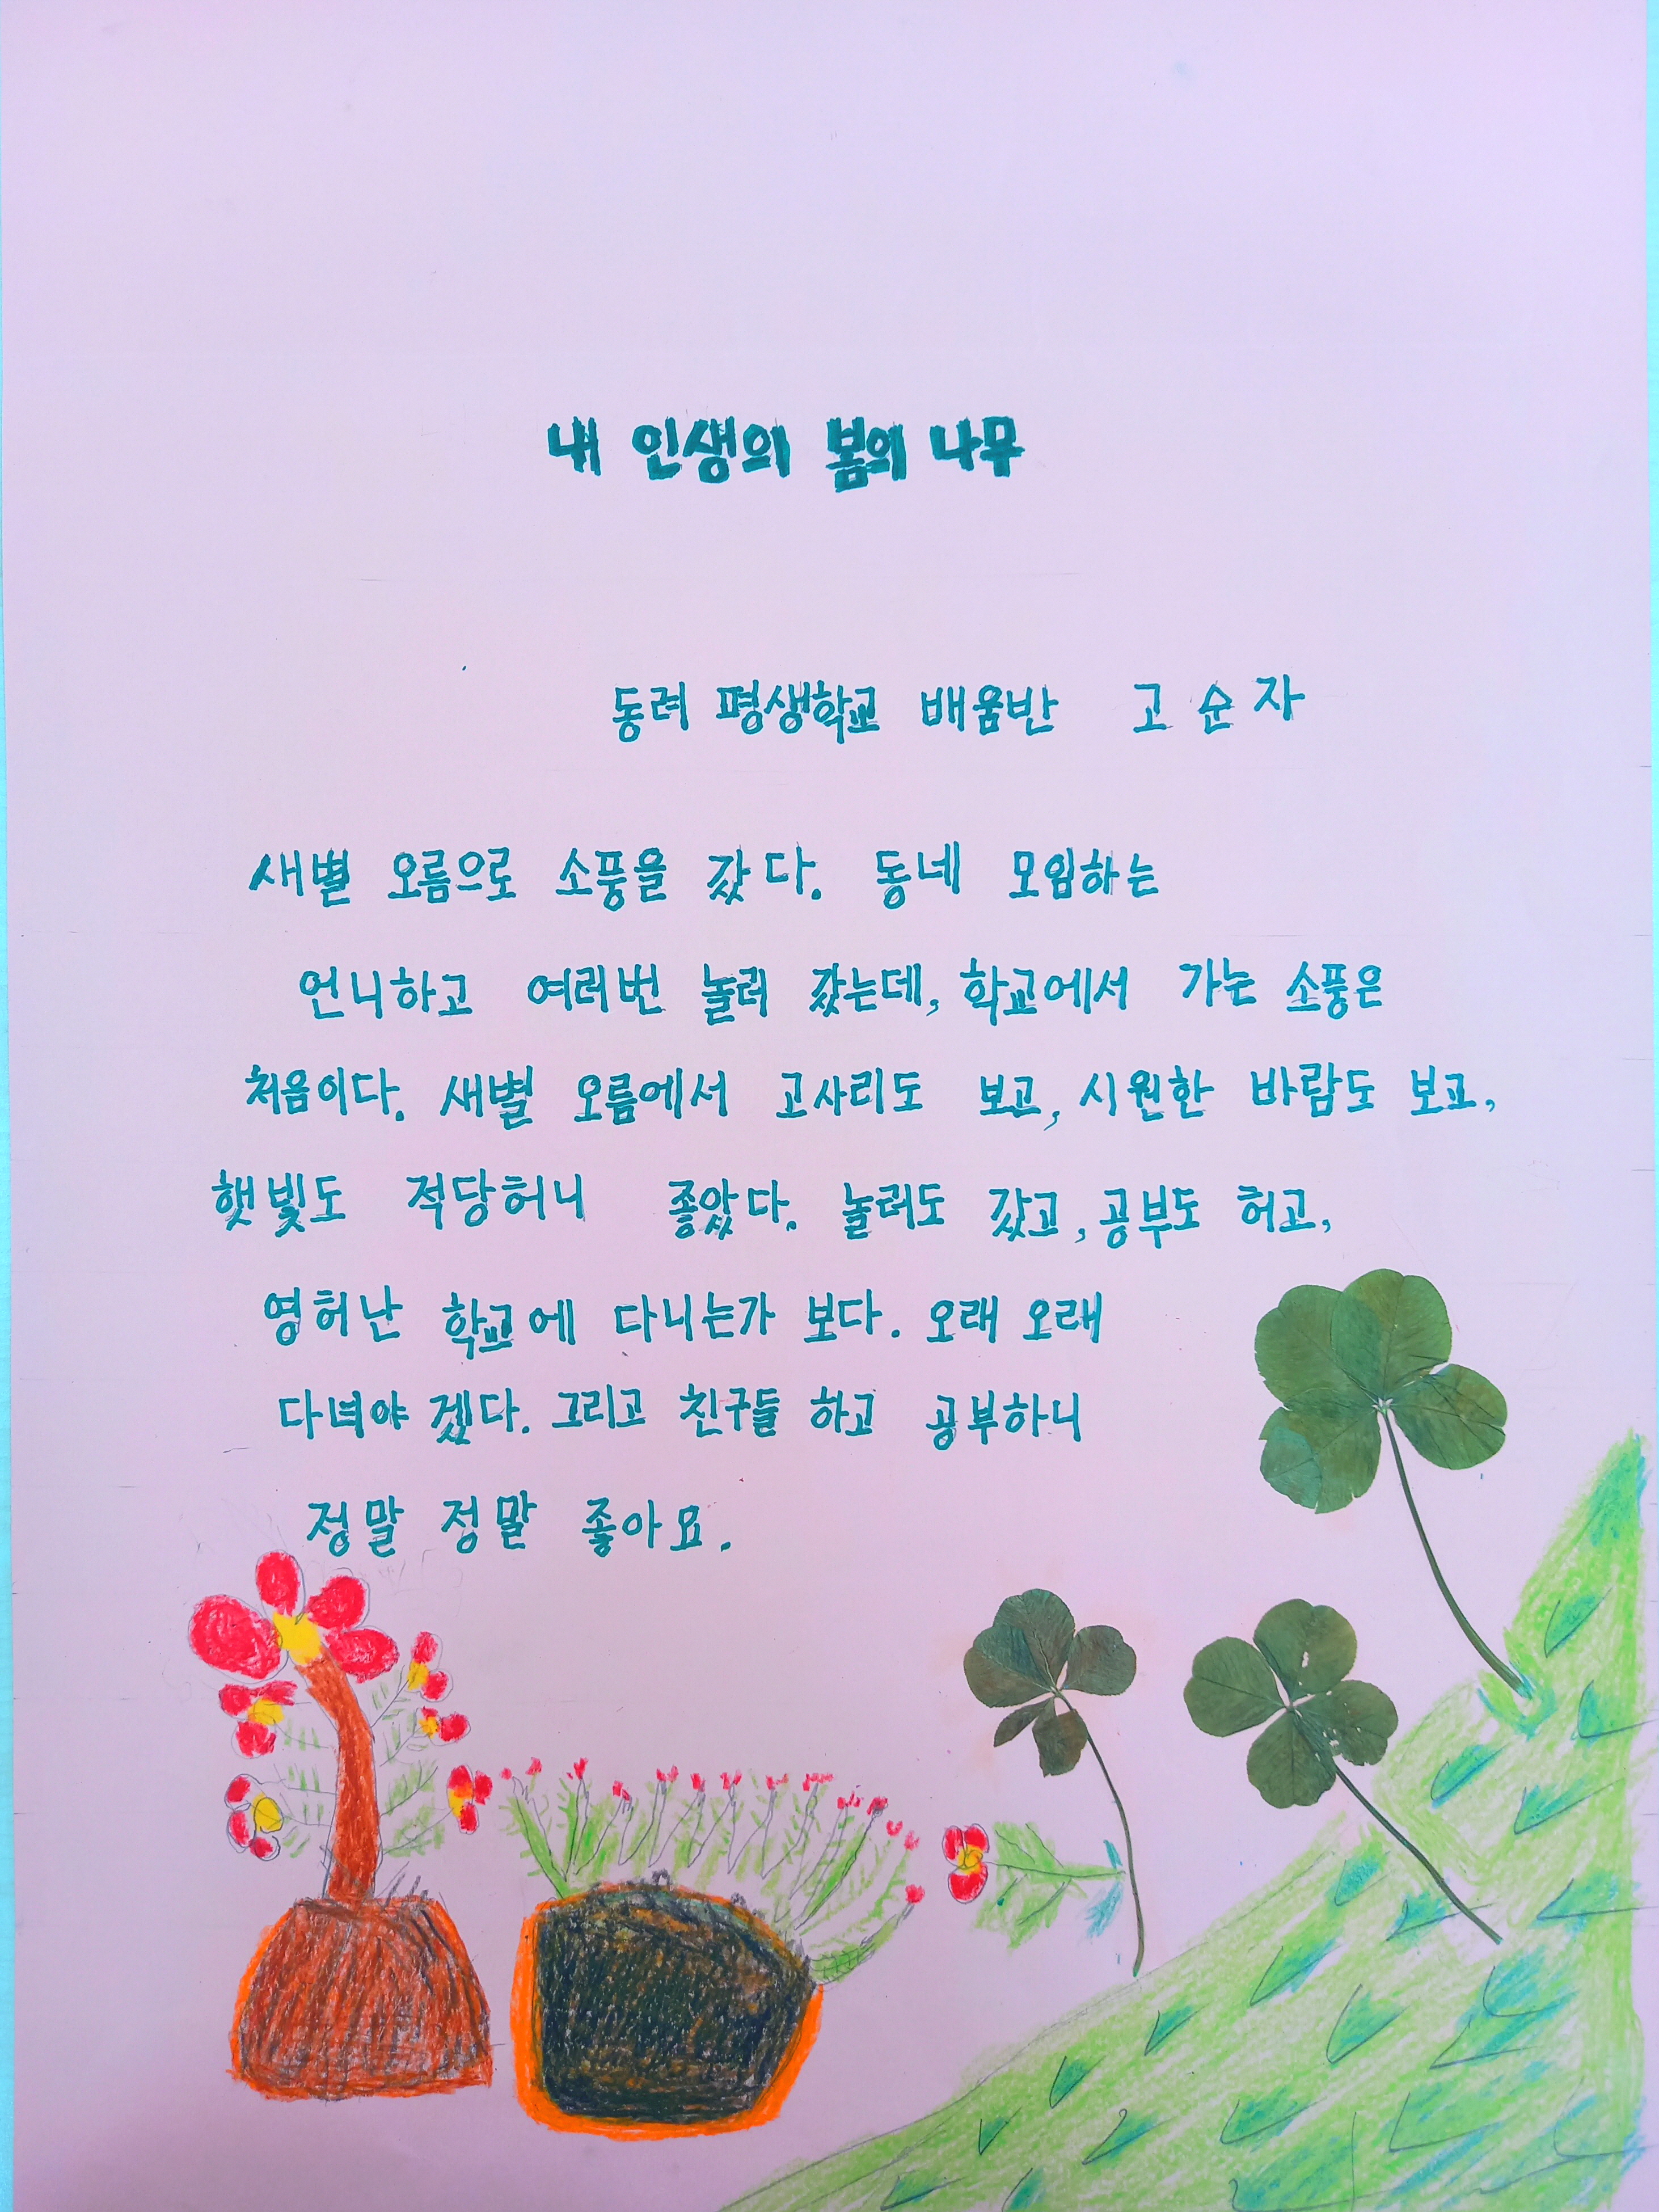 내 인생의 봄의 나무
동려 평생학교 배움반 고순자
새별 오름으로 소풍을 갔다. 동네 모임하는
언니하고 여러번 놀러 갔는데, 학교에서 가는 소풍은
처음이다. 새별 오름에서 고사리도 보고, 시원한 바람도 보고,
햇빛도 적당허니 좋았다. 놀러도 갔고, 공부도 허고,
영허난 학교에 다니는가 보다. 오래 오래
다녀야 겠다. 그리고 친구들 하고 공부하니
정말 정말 좋아요.